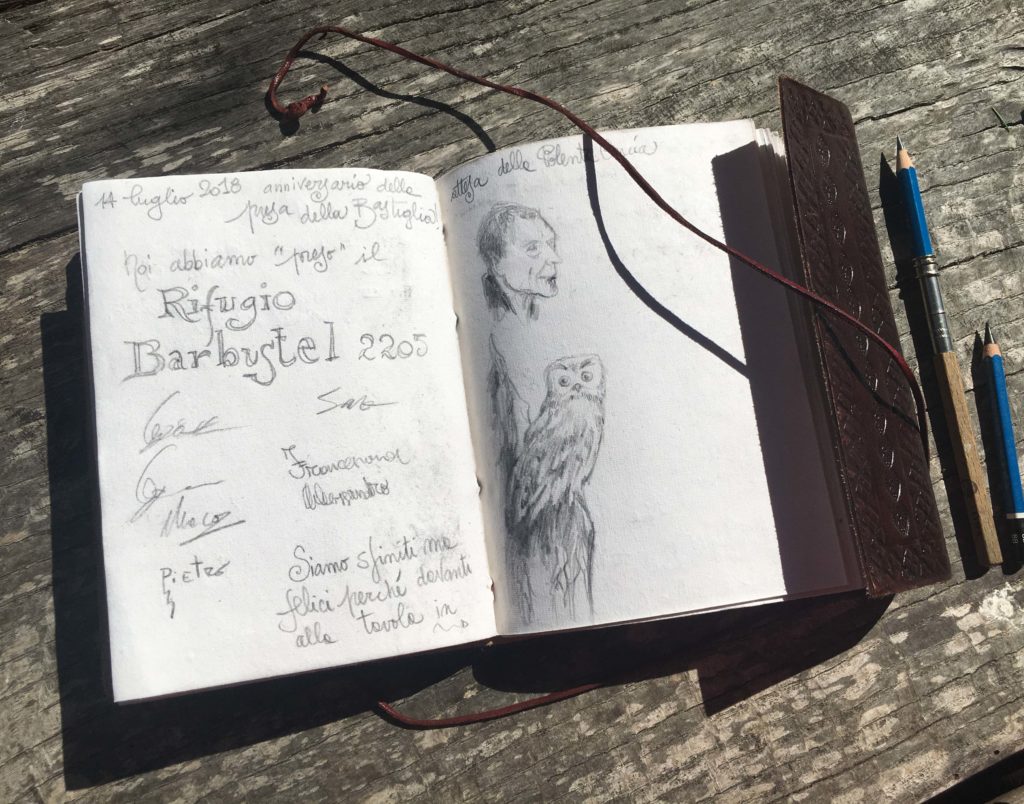 14 luglio 2018 anniversario della
presa della Bastiglia!
Noi abbiamo "preso" il
Rifugio
Barbustel 2205
Sara
Francesca
Alessandro
Marco
Pietro
Siamo sfiniti ma
felici perché davanti
alla tavola in
attesa della Polenta Concia
8B